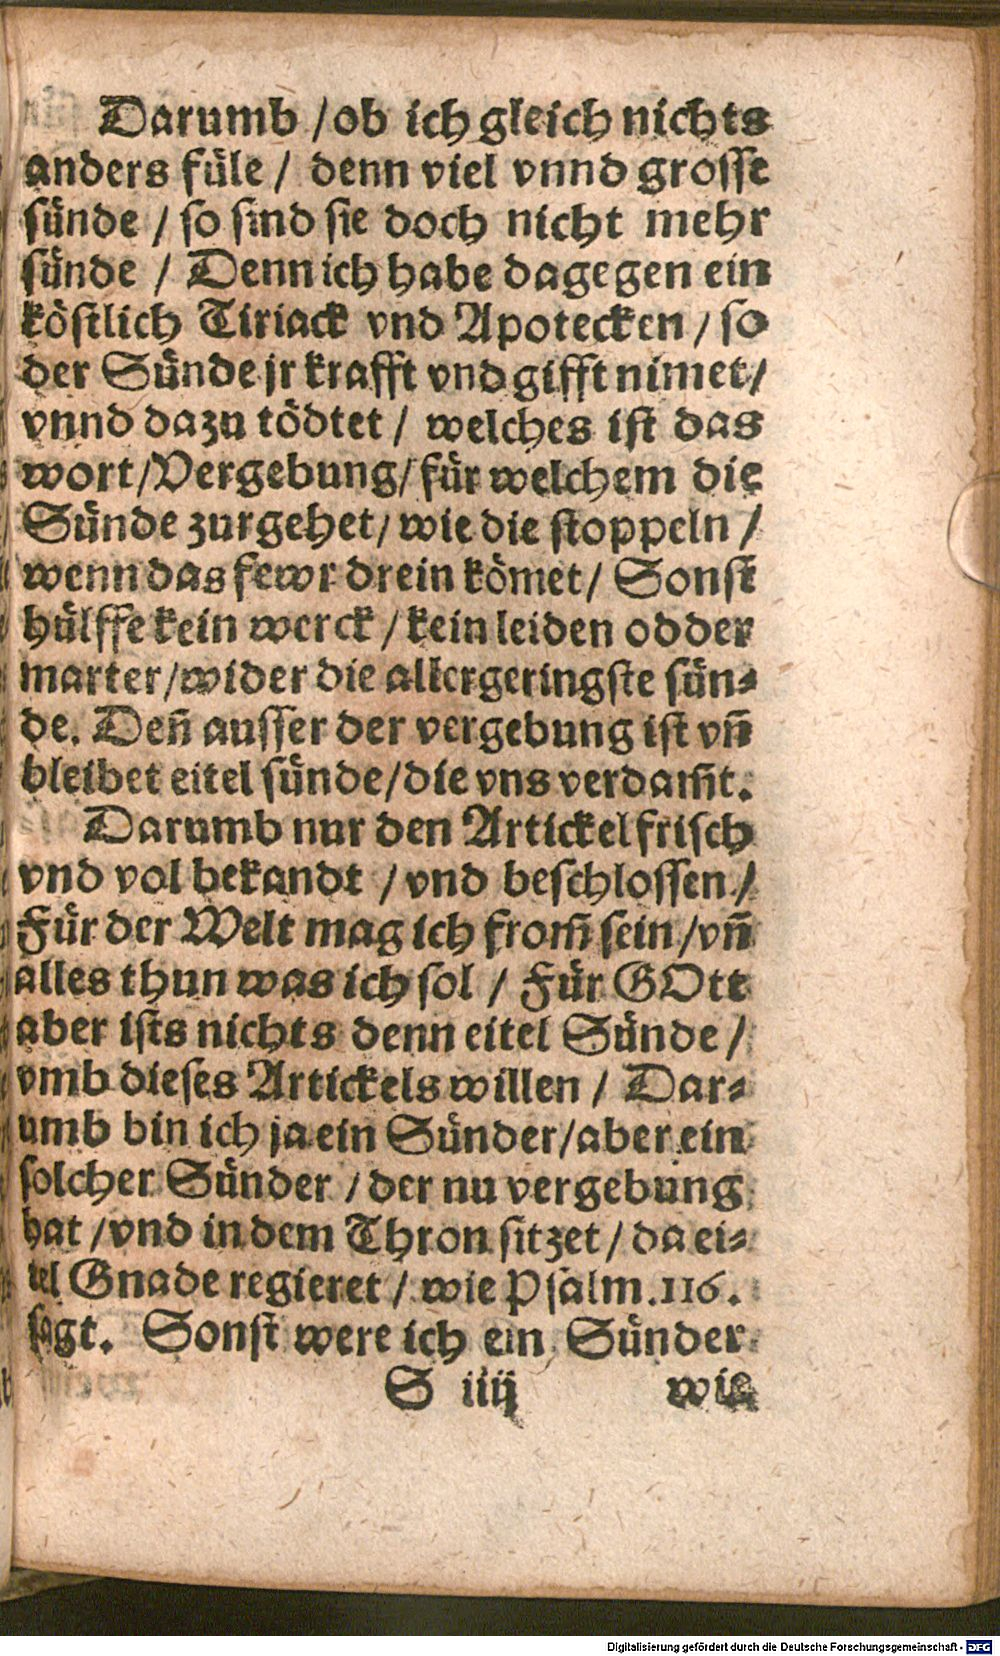 Darumb / ob ich gleich nichts
anders füle / denn viel vnnd grosse
sünde / so sind sie doch nicht mehr
sünde / Denn ich habe dagegen ein
köstlich Tiriack vnd Apotecken / so
der Sünde jr krafft vnd gifft nimet /
vnnd dazu tödtet / welches ist das
wort / Vergebung / für welchem die
Sünde zurgehet / wie die stoppeln /
wenn das fewr drein kömet / Sonst
hülffe kein werck / kein leiden odder
marter / wider die allergeringste sün⸗
de. Deñ ausser der vergebung ist vñ
bleibet eitel sünde / die vns verdam̃t.
Darumb nur den Artickel frisch
vnd vol bekandt / vnd beschlossen /
Für der Welt mag ich from̃ sein / vñ
alles thun was ich sol / Für GOtt
aber ists nichts denn eitel Sünde /
vmb dieses Artickels willen / Dar⸗
umb bin ich ja ein Sünder / aber ein
solcher Sünder / der nu vergebung
hat / vnd in dem Thron sitzet / da ei⸗
tel Gnade regieret / wie Psalm. 116.
sagt. Sonst were ich ein Sünder
S iiij wie
Digitalisierung gefördert durch die Deutsche Forschungsgemeinschaft - DFG